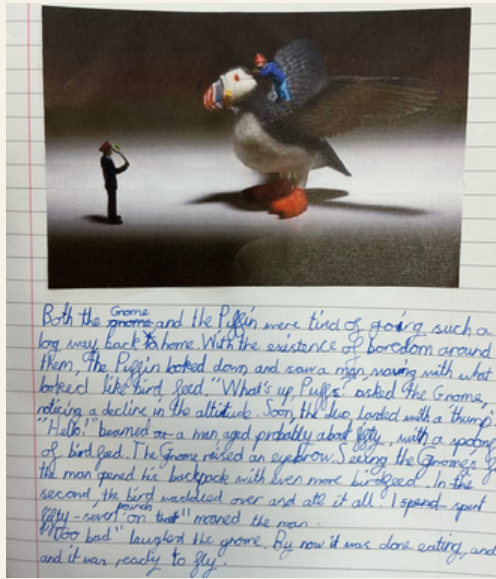 Both the Gnome and the Puffin were tired of going such a
long way back home. With the existence of boredom around
them, The Puffin looked down and saw a man waving with what
looked like bird feed. "What's up, Puffs" asked the Gnome,
noticing a decline in the altitude. Soon, the duo, landed with a thump.
"Hello!" beamed a man aged probably about fifty, with a spoon
of bird feed. The Gnome raised an eyebrow. Seeing the Gnome's
the man opened his backpack with even more birdfeed. In the
second, the bird waddled over and ate it all. I spent
fifty-seven pounch on that" moaned the man.
"Too bad" laughed the gnome. By now it was done eating, and
and it was ready to fly.